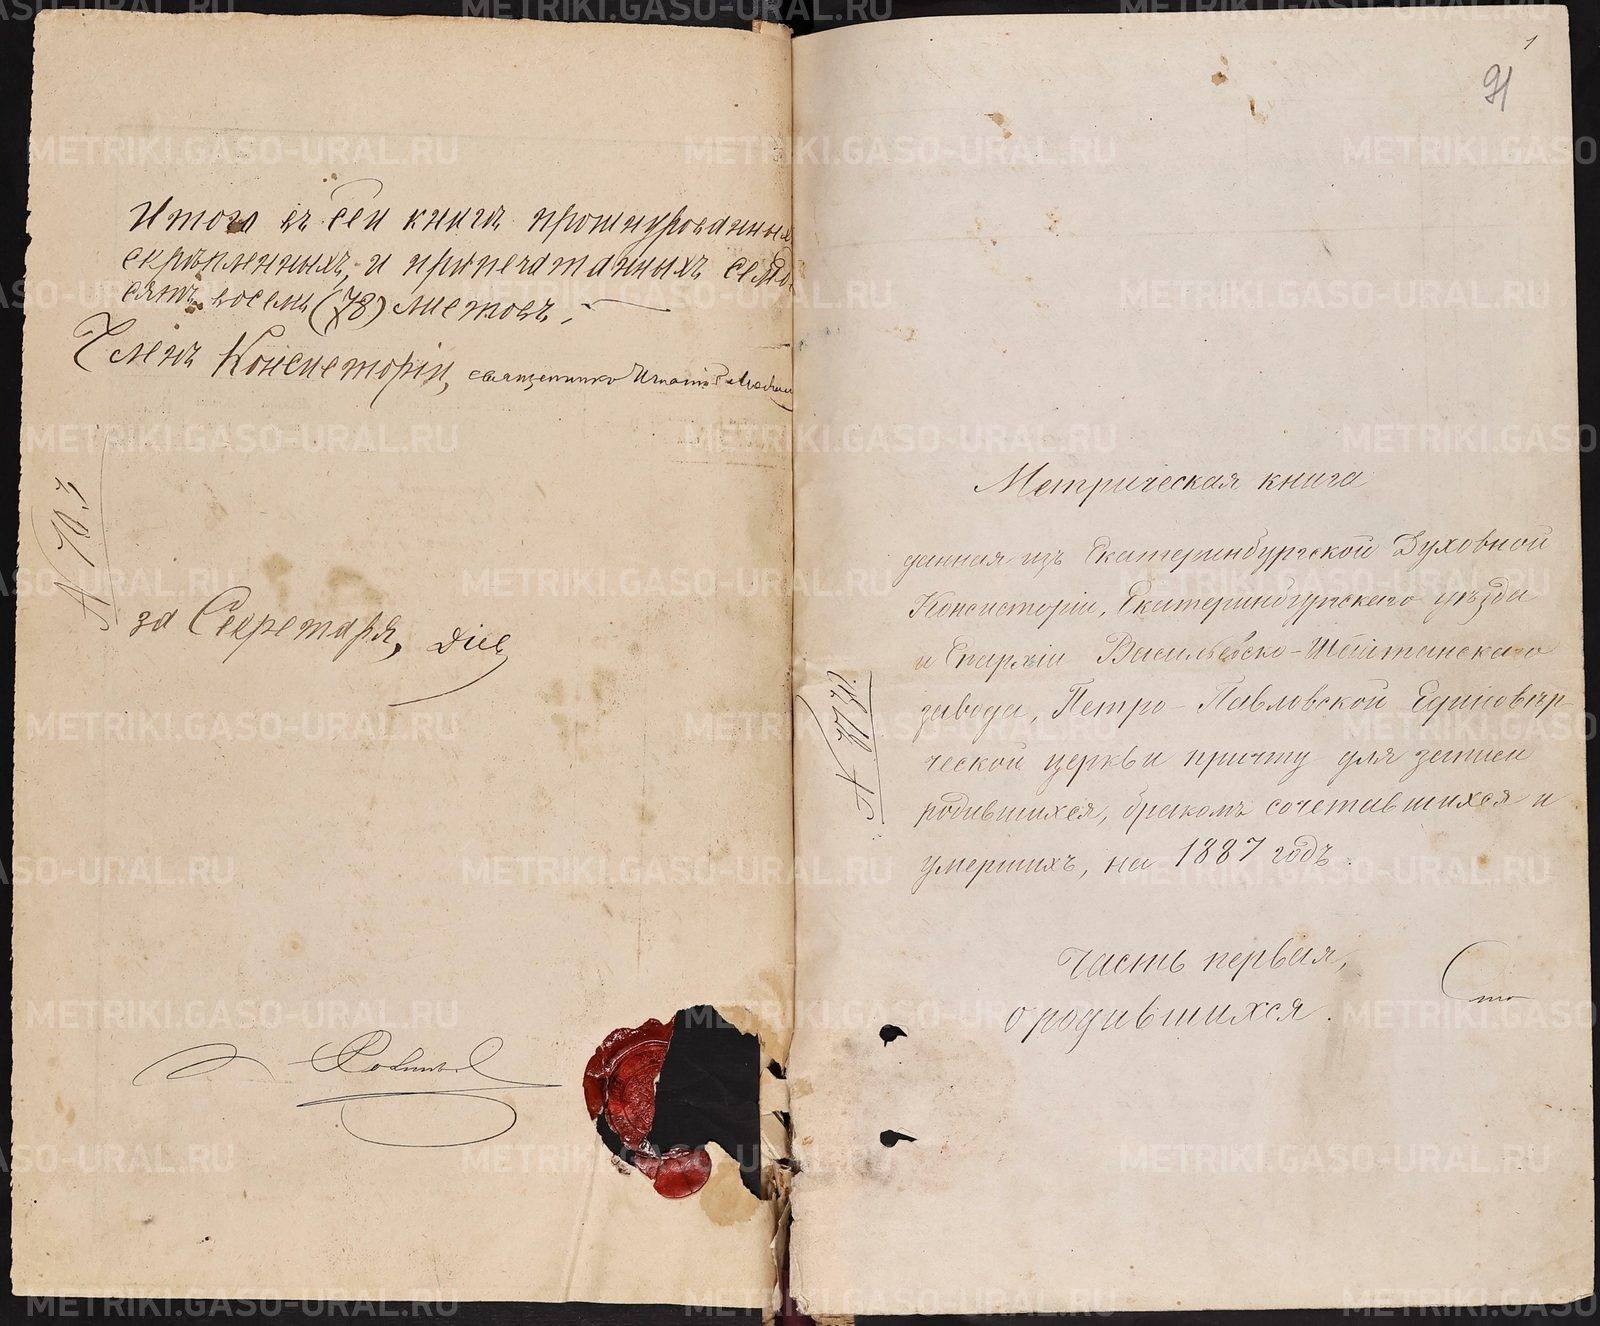 Итого въ сей книгѣ прошнурованныхъ
скрѣпленныхъ, и припечатанныхъ семьде-
сятъ восемь (78) листовъ.
Членъ Консисторіи, священникъ Игнатій
№ 703
за Секретаря,
1
91
Метрическая книга
данная изъ Екатеринбургской Духовной
Консисторіи, Екатеринбургскаго уѣзда
и Епархіи Васильевско-Шайтанскаго
завода, Петро-Павловской Единовѣр-
ческой церкви причту для записи
родившихся, бракомъ сочетавшихся и
умершихъ, на 1887 годъ.
Часть первая,
о родившихся.
Сто
METRIKI.GASO-URAL.RU